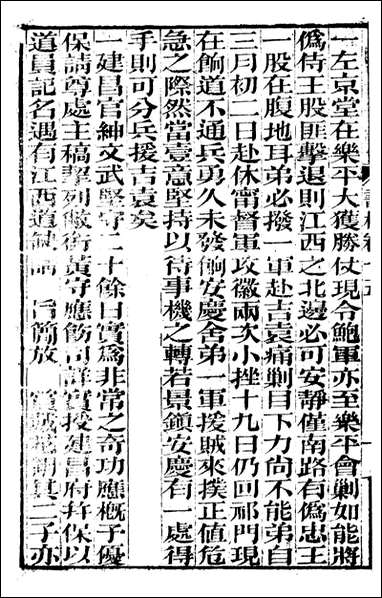 一左京堂在樂平大獲勝仗現令鮑軍亦至樂平會剿如能將
偽侍王股匪擊退則江西之北邊必可安靜僅南路有偽忠王
一股在腹地耳弟必撥一軍赴吉袁痛剿目下力尚不能弟自
三月初二日赴休甯督軍攻徽兩次小挫十九日仍回祁門現
在餉道不通兵勇久未發餉安慶舍弟一軍援賊來撲正值危
急之際然當壹意堅持以待事機之轉若景鎮安慶有一處得
手則可分兵援吉袁矣
一建昌官紳文武堅守二十餘日實為非常之奇功應概予優
保請尊處主稿掣列敝銜黃守應飭司詳實授建昌府幷保以
道員記名遇有江西道缺請 旨簡放 其二子亦